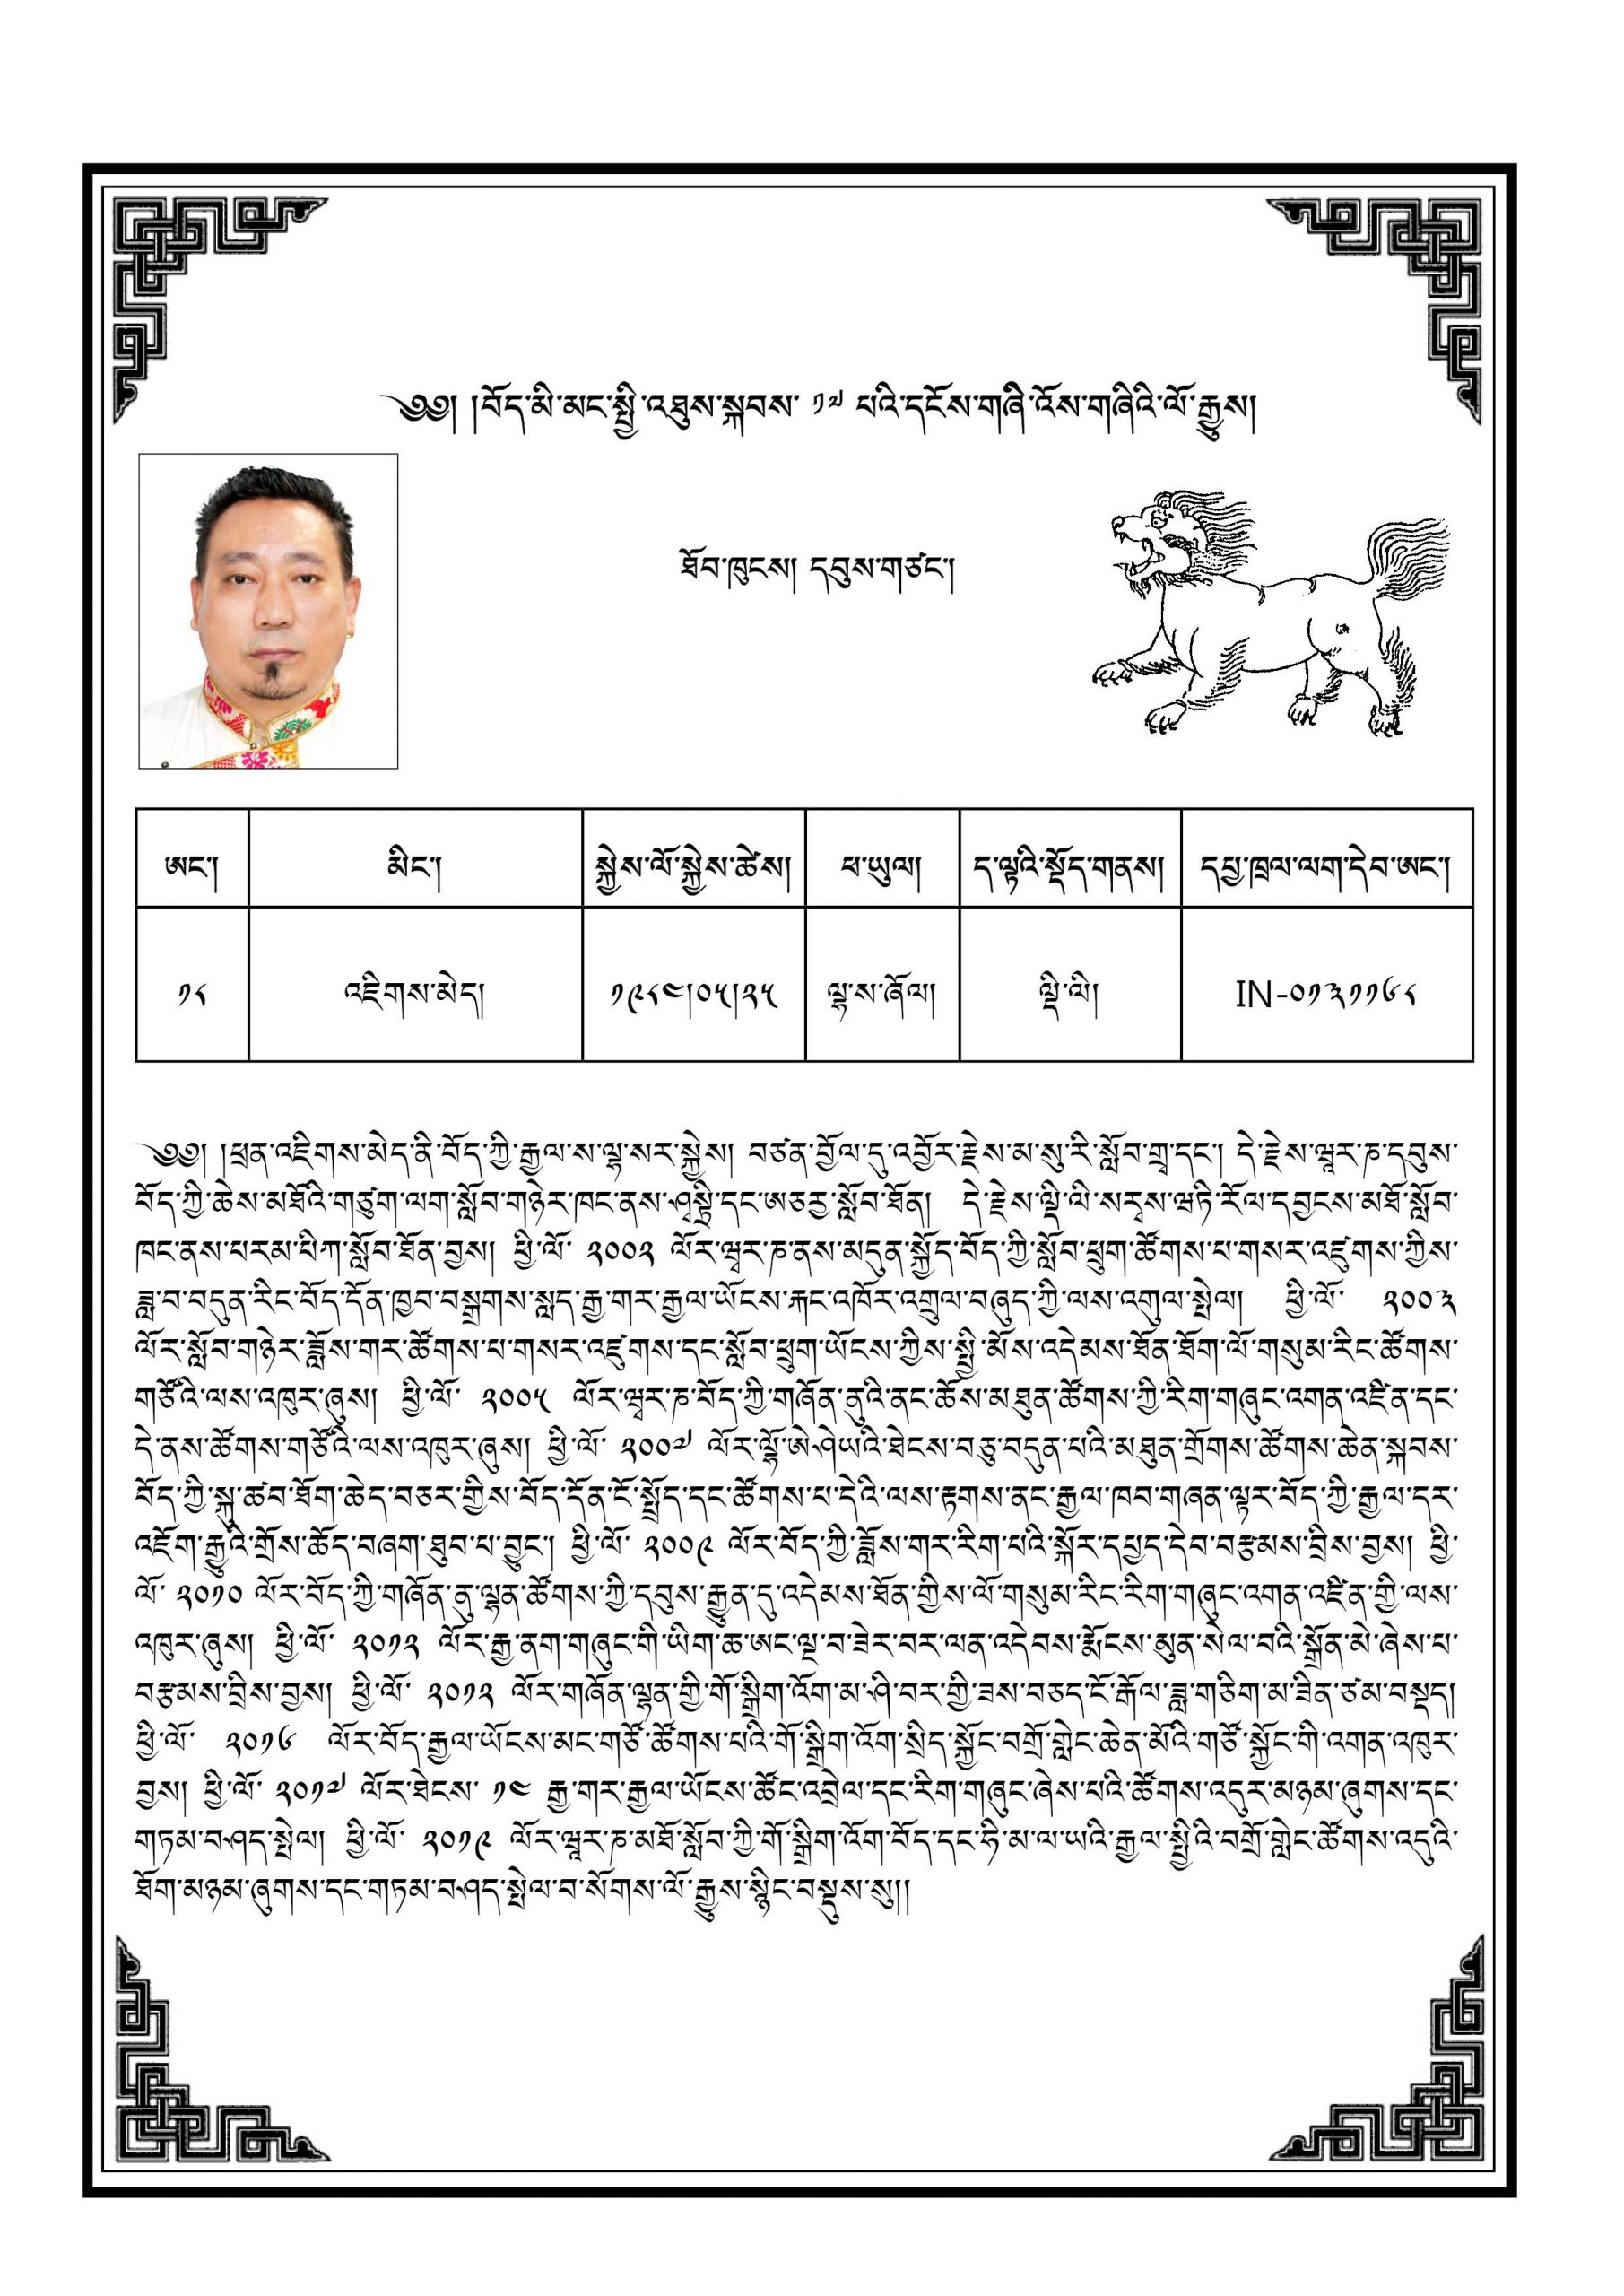 ༄༅། །བོད་མི་མང་སྤྱི་འཐུས་སྐབས་ ༡༧ པའི་དངོས་གཞིི་འོས་གཞིའི་ལོ་རྒྱུས།
ཐོབ་ཁུངས། དབུས་གཙང་།
ཨང་། མིང་། སྐྱེས་ལོ་སྐྱེས་ཚེས། ཕ་ཡུལ། ད་ལྟའི་སྡོད་གནས། དཔྱ་ཁྲལ་ལག་དེབ་ཨང་།
༡༨ འཇིགས་མེད། ༡༩༨༤།༠༥།༢༥ ལྷ་ས་ཞོལ། ལྡི་ལི། IN-༠༡༣༡༡༦༨
༄༅། །ཕྲན་འཇིགས་མེད་ནི་བོད་ཀྱི་རྒྱལ་ས་ལྷ་སར་སྐྱེས། བཙན་བྱོལ་དུ་འབྱོར་རྗེས་མ་སུ་རི་སློབ་གྲྭ་དང་། དེ་རྗེས་ཝཱར་ཎ་དབུས་
བོད་ཀྱི་ཆེས་མཐོའི་གཙུག་ལག་སློབ་གཉེར་ཁང་ནས་ཤཱསྟྲི་དང་ཨཅརྱ་སློབ་ཐོན། དེ་རྗེས་ལྡི་ལི་སརྭས་ཝཏི་རོལ་དབྱངས་མཐོ་སློབ་
ཁང་ནས་པརམ་པིཀ་སློབ་ཐོན་བྱས། ཕྱི་ལོ་ ༢༠༠༢ ལོར་ཝཱར་ཎ་ནས་མདུན་སྐྱོད་བོད་ཀྱི་སློབ་ཕྲུག་ཚོགས་པ་གསར་འཛུགས་ཀྱིས་
ཟླ་བ་བདུན་རིང་བོད་དོན་ཁྱབ་བསྒྲགས་སླད་རྒྱ་གར་རྒྱལ་ཡོངས་རྐང་འཁོར་འགྲུལ་བཞུད་ཀྱི་ལས་འགུལ་སྤེལ། ཕྱི་ལོ་ ༢༠༠༣
ལོར་སློབ་གཉེར་ཟློས་གར་ཚོགས་པ་གསར་འཛུགས་དང་སློབ་ཕྲུག་ཡོངས་ཀྱིས་སྤྱི་མོས་འདེམས་ཐོན་ཐོག་ལོ་གསུམ་རིང་ཚོགས་
གཙོའི་ལས་འཁུར་ཞུས། ཕྱི་ལོ་ ༢༠༠༥ ལོར་ཝཱར་ཎ་བོད་ཀྱི་གཞོན་ནུའི་ནང་ཆོས་མཐུན་ཚོགས་ཀྱི་རིག་གཞུང་འགན་འཛིན་དང་
དེ་ནས་ཚོགས་གཙོའི་ལས་འཁུར་ཞུས། ཕྱི་ལོ་ ༢༠༠༧ ལོར་ལྷོ་ཨེ་ཤེ་ཡའི་ཐེངས་བཅུ་བདུན་པའི་མཐུན་གྲོགས་ཚོགས་ཆེན་སྐབས་
བོད་ཀྱི་སྐུ་ཚབ་ཐོག་ཆེད་བཅར་གྱིས་བོད་དོན་ངོ་སྤྲོད་དང་ཚོགས་པ་དེའི་ལས་རྟགས་ནང་རྒྱལ་ཁབ་གཞན་ལྟར་བོད་ཀྱི་རྒྱལ་དར་
འཇོག་རྒྱུའི་གྲོས་ཆོད་བཞག་ཐུབ་པ་བྱུང་། ཕྱི་ལོ་ ༢༠༠༩ ལོར་བོད་ཀྱི་ཟློས་གར་རིག་པའི་སྐོར་དཔྱད་དེབ་བརྩམས་བྲིས་བྱས། ཕྱི་
ལོ་ ༢༠༡༠ ལོར་བོད་ཀྱི་གཞོན་ནུ་ལྷན་ཚོགས་ཀྱི་དབུས་རྒྱུན་དུ་འདེམས་ཐོན་གྱིས་ལོ་གསུམ་རིང་རིག་གཞུང་འགན་འཛིན་གྱི་ལས་
འཁུར་ཞུས། ཕྱི་ལོ་ ༢༠༡༢ ལོར་རྒྱ་ནག་གཞུང་གི་ཡིག་ཆ་ཨང་ལྔ་བ་ཟེར་བར་ལན་འདེབས་རྨོངས་མུན་སེལ་བའི་སྒྲོན་མེ་ཞེས་པ་
བརྩམས་བྲིས་བྱས། ཕྱི་ལོ་ ༢༠༡༢ ལོར་གཞོན་ལྷན་གྱི་གོ་སྒྲིག་འོག་མ་ཤི་བར་གྱི་ཟས་བཅད་ངོ་རྒོལ་ཟླ་གཅིག་མ་ཟིན་ཙམ་བསྡད།
ཕྱི་ལོ་ ༢༠༡༦ ལོར་བོད་རྒྱལ་ཡོངས་མང་གཙོ་ཚོགས་པའི་གོ་སྒྲིག་འོག་སྲིད་སྐྱོང་བགྲོ་གླེང་ཆེན་མོའི་གཙོ་སྐྱོང་གི་འགན་འཁུར་
བྱས། ཕྱི་ལོ་ ༢༠༡༧ ལོར་ཐེངས་ ༡༤ རྒྱ་གར་རྒྱལ་ཡོངས་ཚོང་འབྲེལ་དང་རིག་གཞུང་ཞེས་པའི་ཚོགས་འདུར་མཉམ་ཞུགས་དང་
གཏམ་བཤད་སྤེལ། ཕྱི་ལོ་ ༢༠༡༩ ལོར་ཝཱར་ཎ་མཐོ་སློབ་ཀྱི་གོ་སྒྲིག་འོག་བོད་དང་ཧི་མ་ལ་ཡའི་རྒྱལ་སྤྱིའི་བགྲོ་གླེང་ཚོགས་འདུའི་
ཐོག་མཉམ་ཞུགས་དང་གཏམ་བཤད་སྤེལ་བ་སོགས་ལོ་རྒྱུས་སྙིང་བསྡུས་སུ།།